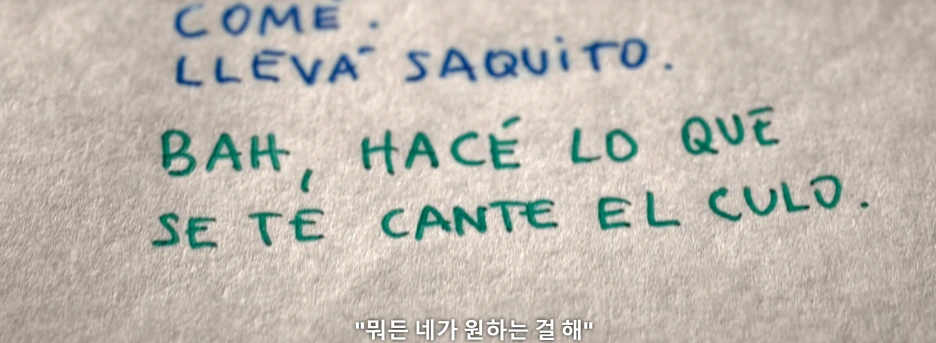 COMÉ.
LLEVÁ SAQUiTO.
BAH, HACÉ LO QUE
SE TE CANTE EL CULO.
"뭐든 네가 원하는 걸 해"